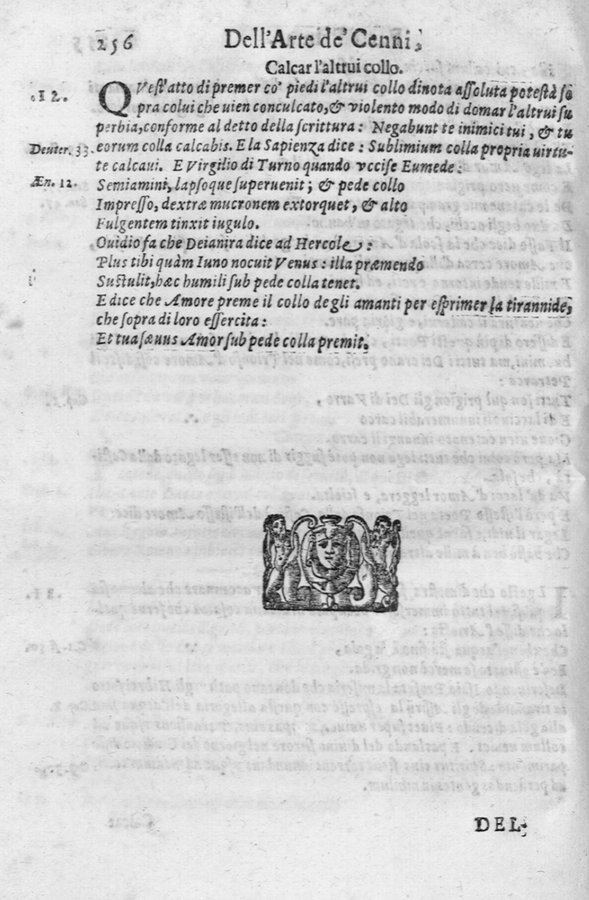 256 Dell'Arte de' Cenni,
Calcar l'altrui collo.
12. QVest'atto di premer co' piedi l'altrui collo dinota assoluta potestà so
pra colui che uien conculcato, & violento modo di domar l'altrui su
perbia, conforme al detto della scrittura: Negabunt te inimici tui, & tu
Deuter. 33. eorum colla calcabis. E la Sapienza dice: Sublimium colla propria uirtu-
te calcaui. E Virgilio di Turno quando vccise Eumede:
Æn. 12. Semiamini, lapsoque superuenit; & pede collo
Impresso, dextræ mucronem extorquet, & alto
Fulgentem tinxit iugulo.
Ouidio fa che Deianira dice ad Hercole:
Plus tibi quàm Iuno nocuit Venus: illa præmendo
Sustulit, hæc humili sub pede colla tenet.
E dice che Amore preme il collo degli amanti per esprimer la tirannide,
che sopra di loro essercita:
Et tua sæuus Amor sub pede colla premit.
DEL-